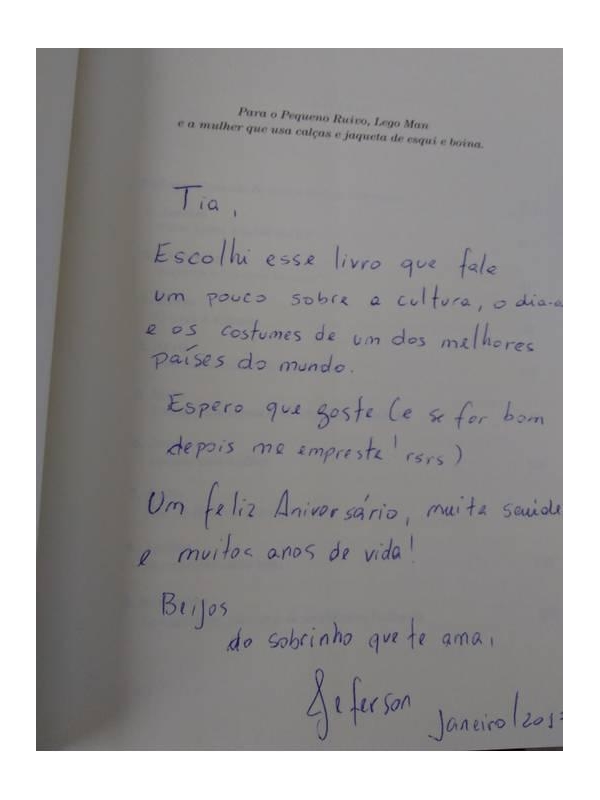 Para o Pequeno Ruivo, Lego Man
e a mulher que usa calças e jaqueta de esqui e boina.
Tia,
Escolhi esse livro que fale
um pouco sobre a cultura, o dia-a
e os costumes de um dos melhores
países do mundo.
Espero que goste (e se for bom
depois me empreste! rsrs)
Um feliz Aniversário, muita saúde
e muitos anos de vida!
Beijos
do sobrinho que te ama,
Jeferson
Janeiro/201